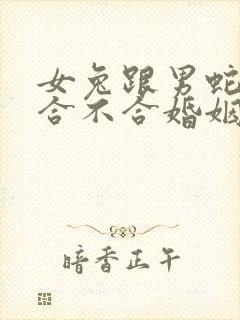 女兔跟男蛇
合不合婚姻
暗香正午